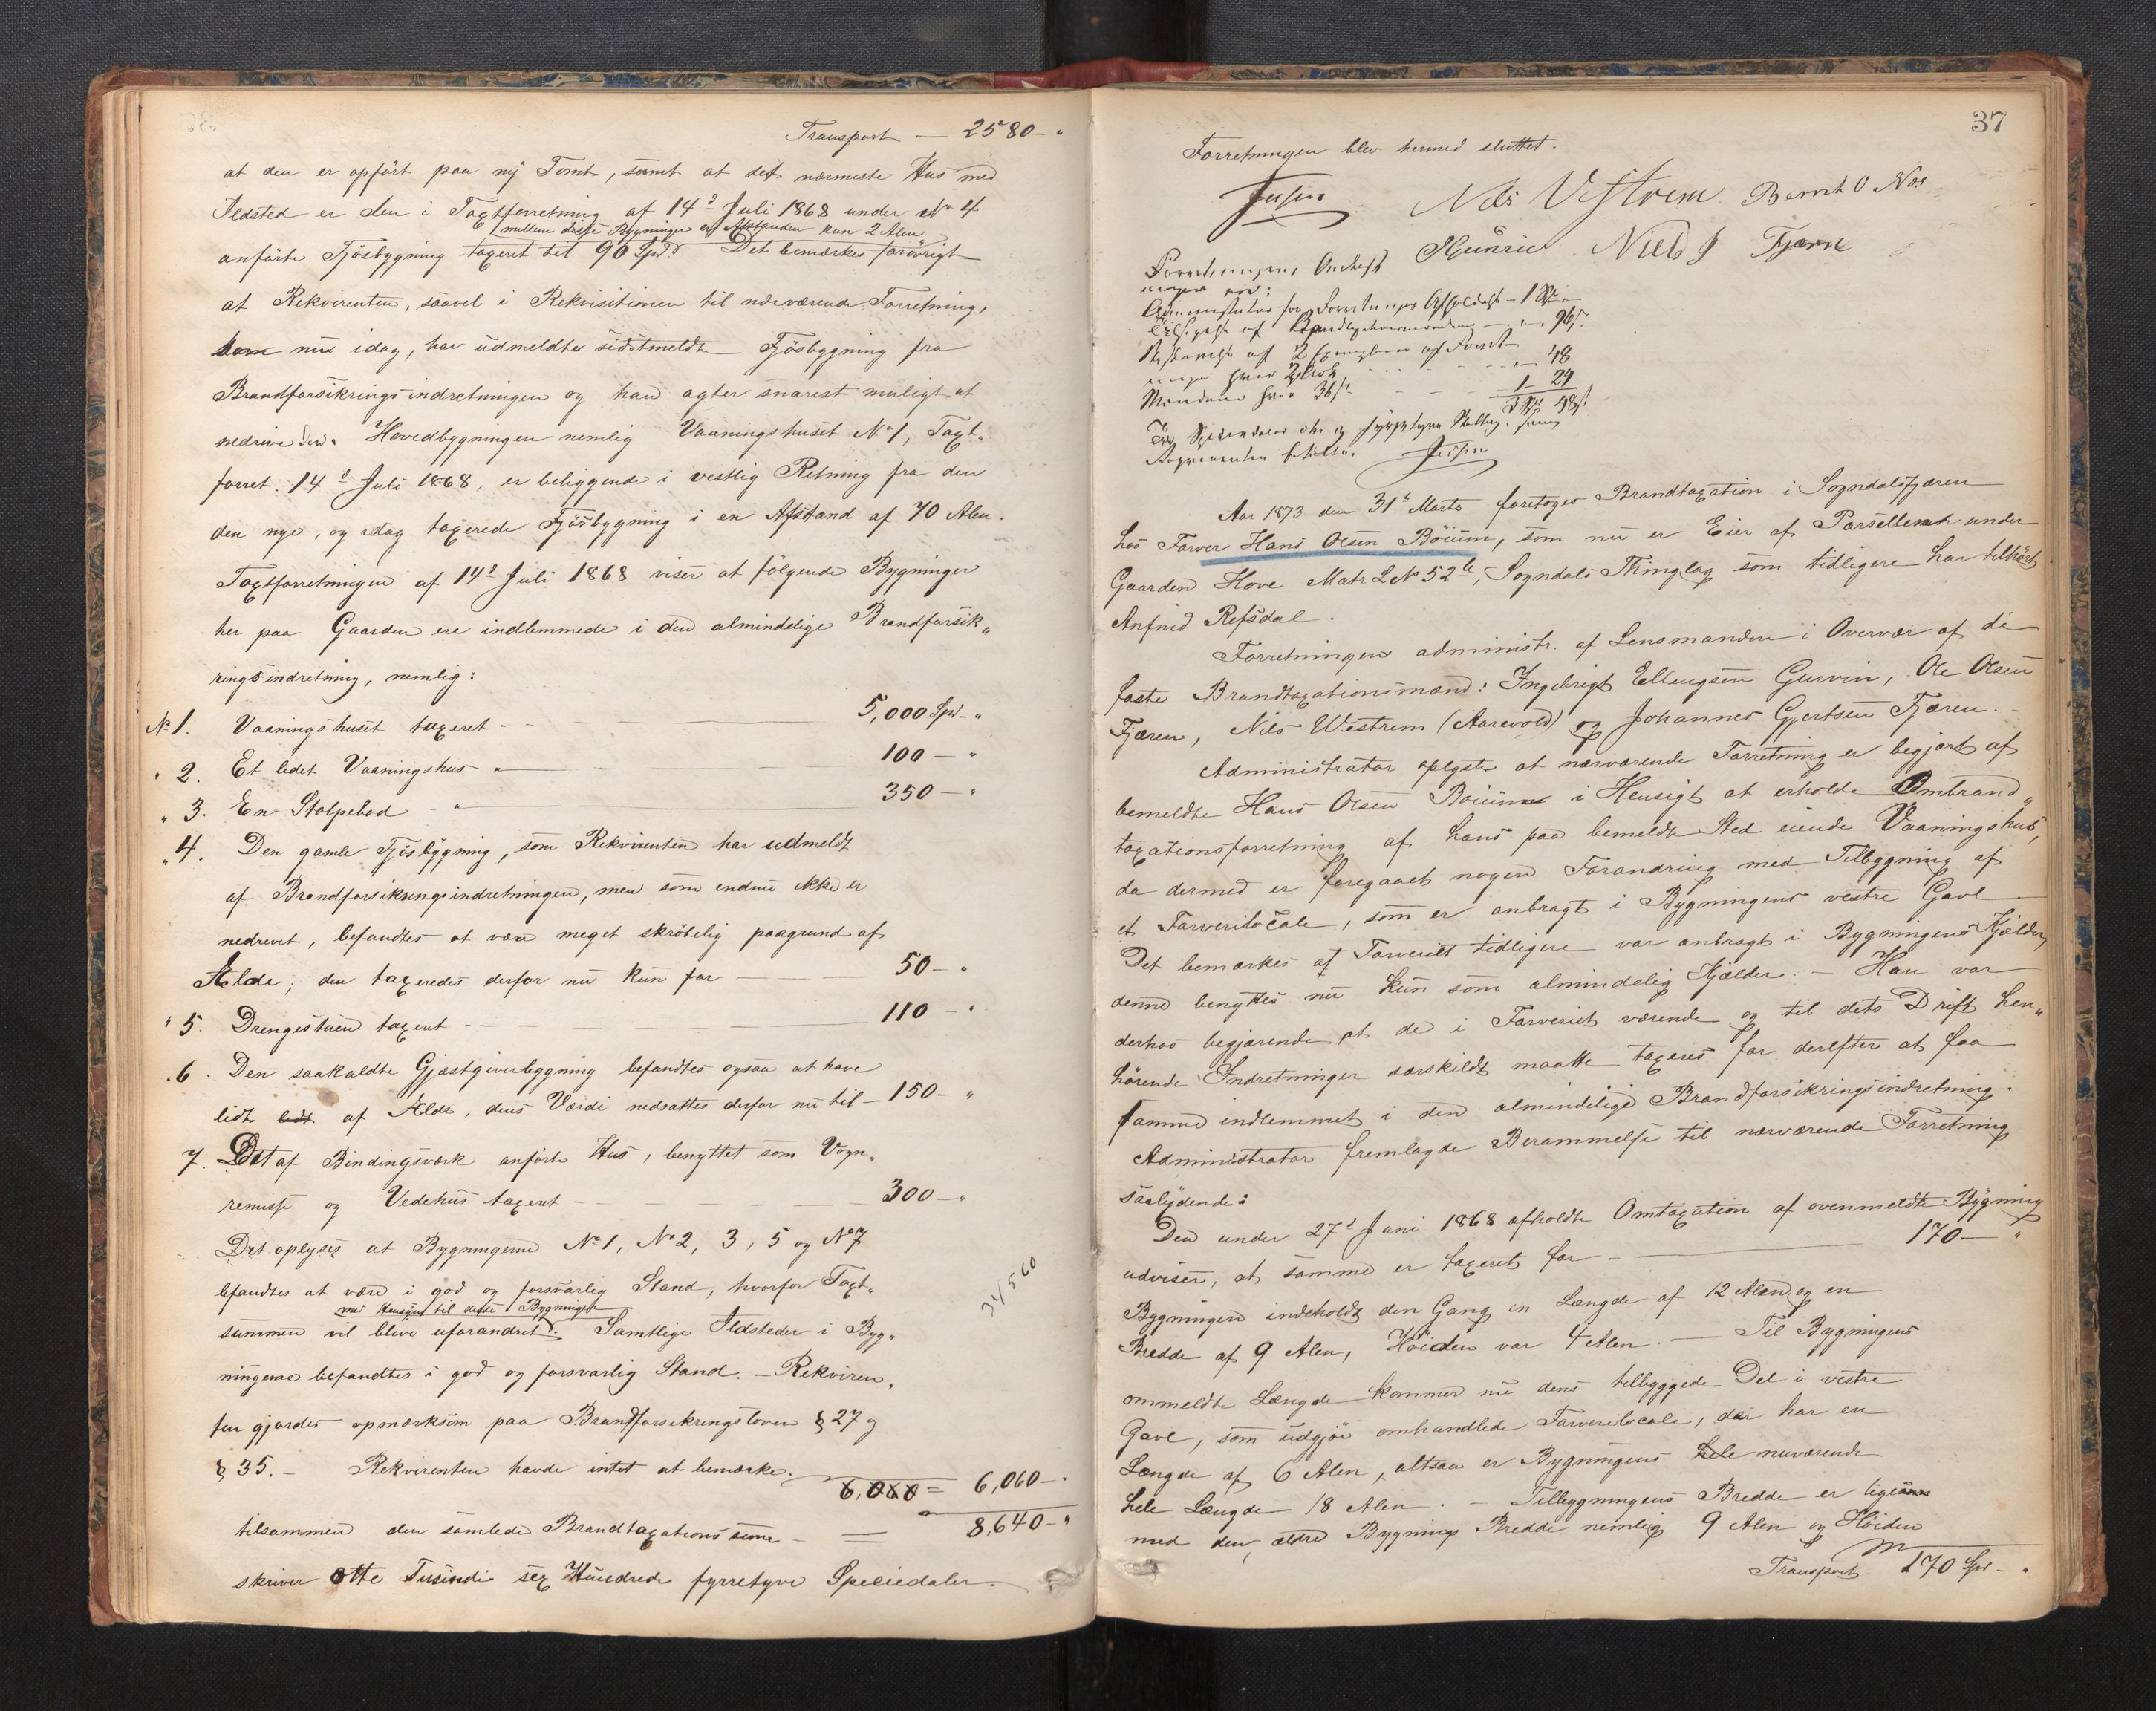 Transport — 2580 - "
at den er opført paa ny Tomt, samt at det nærmeste Hus med
Ildsted er den i Taxtforretning af 14d Juli 1868 under No 4
mellem disse Bygninger er Afstanden kun 2 Alen
anførte Fjøsbygning taxeret til 90 Spd. Det bemærkes forøvrigt
at Rekvirenten, saavel i Rekvisitionen til nærværende Forretning,
som nu idag, har udmeldte sidstmeldte Fjøsbygning fra
Brandforsikringsindretningen og han agter snarest muligt at
nedrive den. Hovedbygningen nemlig Vaaningshuset No 1, Taxt-
forret. 14d Juli 1868, er beliggende i vestlig Retning fra den
den nye, og idag taxerede Fjøsbygning i en Afstand af 70 Alen.
Taxtforretningen af 14d Juli 1868 viser at følgende Bygninger
her paa Gaarden ere indlemmede i den almindelige Brandforsik„
ringsindretning, nemlig:
No 1. Vaaningshuset taxeret - - 5,000 Spd - "
" 2. Et lidet Vaaningshus " 100 - "
" 3. En Stolpebod - " 350 - "
" 4. Den gamle Fjøsbygning, som Rekvirenten har udmeldt
af Brandforsikringsindretningen, men som endnu ikke er
nedrevet, befandtes at være meget skrøbelig paagrund af
Ælde; den taxeredes derfor nu kun for — 50 - "
" 5. Drengestuen taxeret - - 110 - "
" 6. Den saakaldte Gjæstgiverbygning befandtes ogsaa at have
lidt lidt af Ælde, dens Værdi nedsattes derfor nu til - 150 - "
7. Det af Bindingsværk anførte Hus, benyttet som Vogn„
remisse og Vedehus taxeret - - - 300 - "
Det oplyses at Bygningerne No 1, No 2, 3, 5 og No 7
befandtes at være i god og forsvarlig Stand, hvorfor Taxt„
med Hensyn til disse Bygninger
summen vil blive uforandret. Samtlige Ildsteder i Byg„
ningerne befandtes i god og forsvarlig Stand. - Rekviren„
ten gjordes opmærksom paa Brandforsikringsloven § 27 og
§ 35. - Rekvirenten havde intet at bemærke.
6,060 = 6,060 - "
tilsammen den samlede Brandtaxationssum - = 8,640 - "
skriver otte Tusinde sex Hundrede fyrretyve Speciedaler.
37
Forretningen blev hermed sluttet.
Nils Vestrem Bernt O Næs
Niels J Fjærn
1 Spd
96 s.
48
1 - 24
48 s.
Aar 1873 den 31te Marts foretoges Brandtaxation i Sogndalsfjæren
hos Farver Hans Olsen Bøium, som nu er Eier af Parsellen under
Gaarden Hove Matr L No 52, Sogndals Thinglag som tidligere har tilhørt
Anfind Refsdal.
Forretningen administr. af Lensmanden i Overvær af de
faste Brandtaxationsmænd: Ingebrigt Ellingsen Gurvin, Ole Olsen
Fjæren, Nils Westrem (Aarevold) og Johannes Gjertsen Fjæren. -
Administrator oplyste at nærværende Forretning er begjært af
bemeldte Hans Olsen Bøium i Hensigt at erholde Ombrand„
taxationsforretning af hans paa bemeldte Sted eiende Vaaningshus,
da dermed er foregaaet nogen Forandring med Tilbygning af
et Farverilocale, som er anbragt i Bygningens vestre Gavl.
Det bemærkes at Farveriet tidligere var anbragt i Bygningens Kjelder,
denne benyttes nu kun som almindelig Kjælder. - Han var
derhos begjærende at de i Farveriet værende og til dets Drift hen„
hørende Indretninger særskildt maatte taxeres for derefter at faa
samme indlemmet i den almindelige Brandforsikringsindretning.
Administrator fremlagde Berammelse til nærværende Forretning
saalydende:
Den under 27d Juni 1868 afholdte Omtaxation af ovenmeldte Bygning
udviser, at samme er taxeret for - 170 - "
Bygningen indeholdt den Gang en Længde af 12 Alen og en
Bredde af 9 Alen, Høiden var 4 Alen. - Til Bygningens
ommeldte Længde kommer nu dens tilbyggede Del i vestre
Gavl, som udgjør omhandlede Farverilocale, der har en
Længde af 6 Alen, altsaa er Bygningens hele nuværende
hele Længde 18 Alen. - Tilbygningens Bredde er ligesom
med den ældre Bygnings Bredde nemlig 9 Alen og Høiden
Transport 170 Spd - "